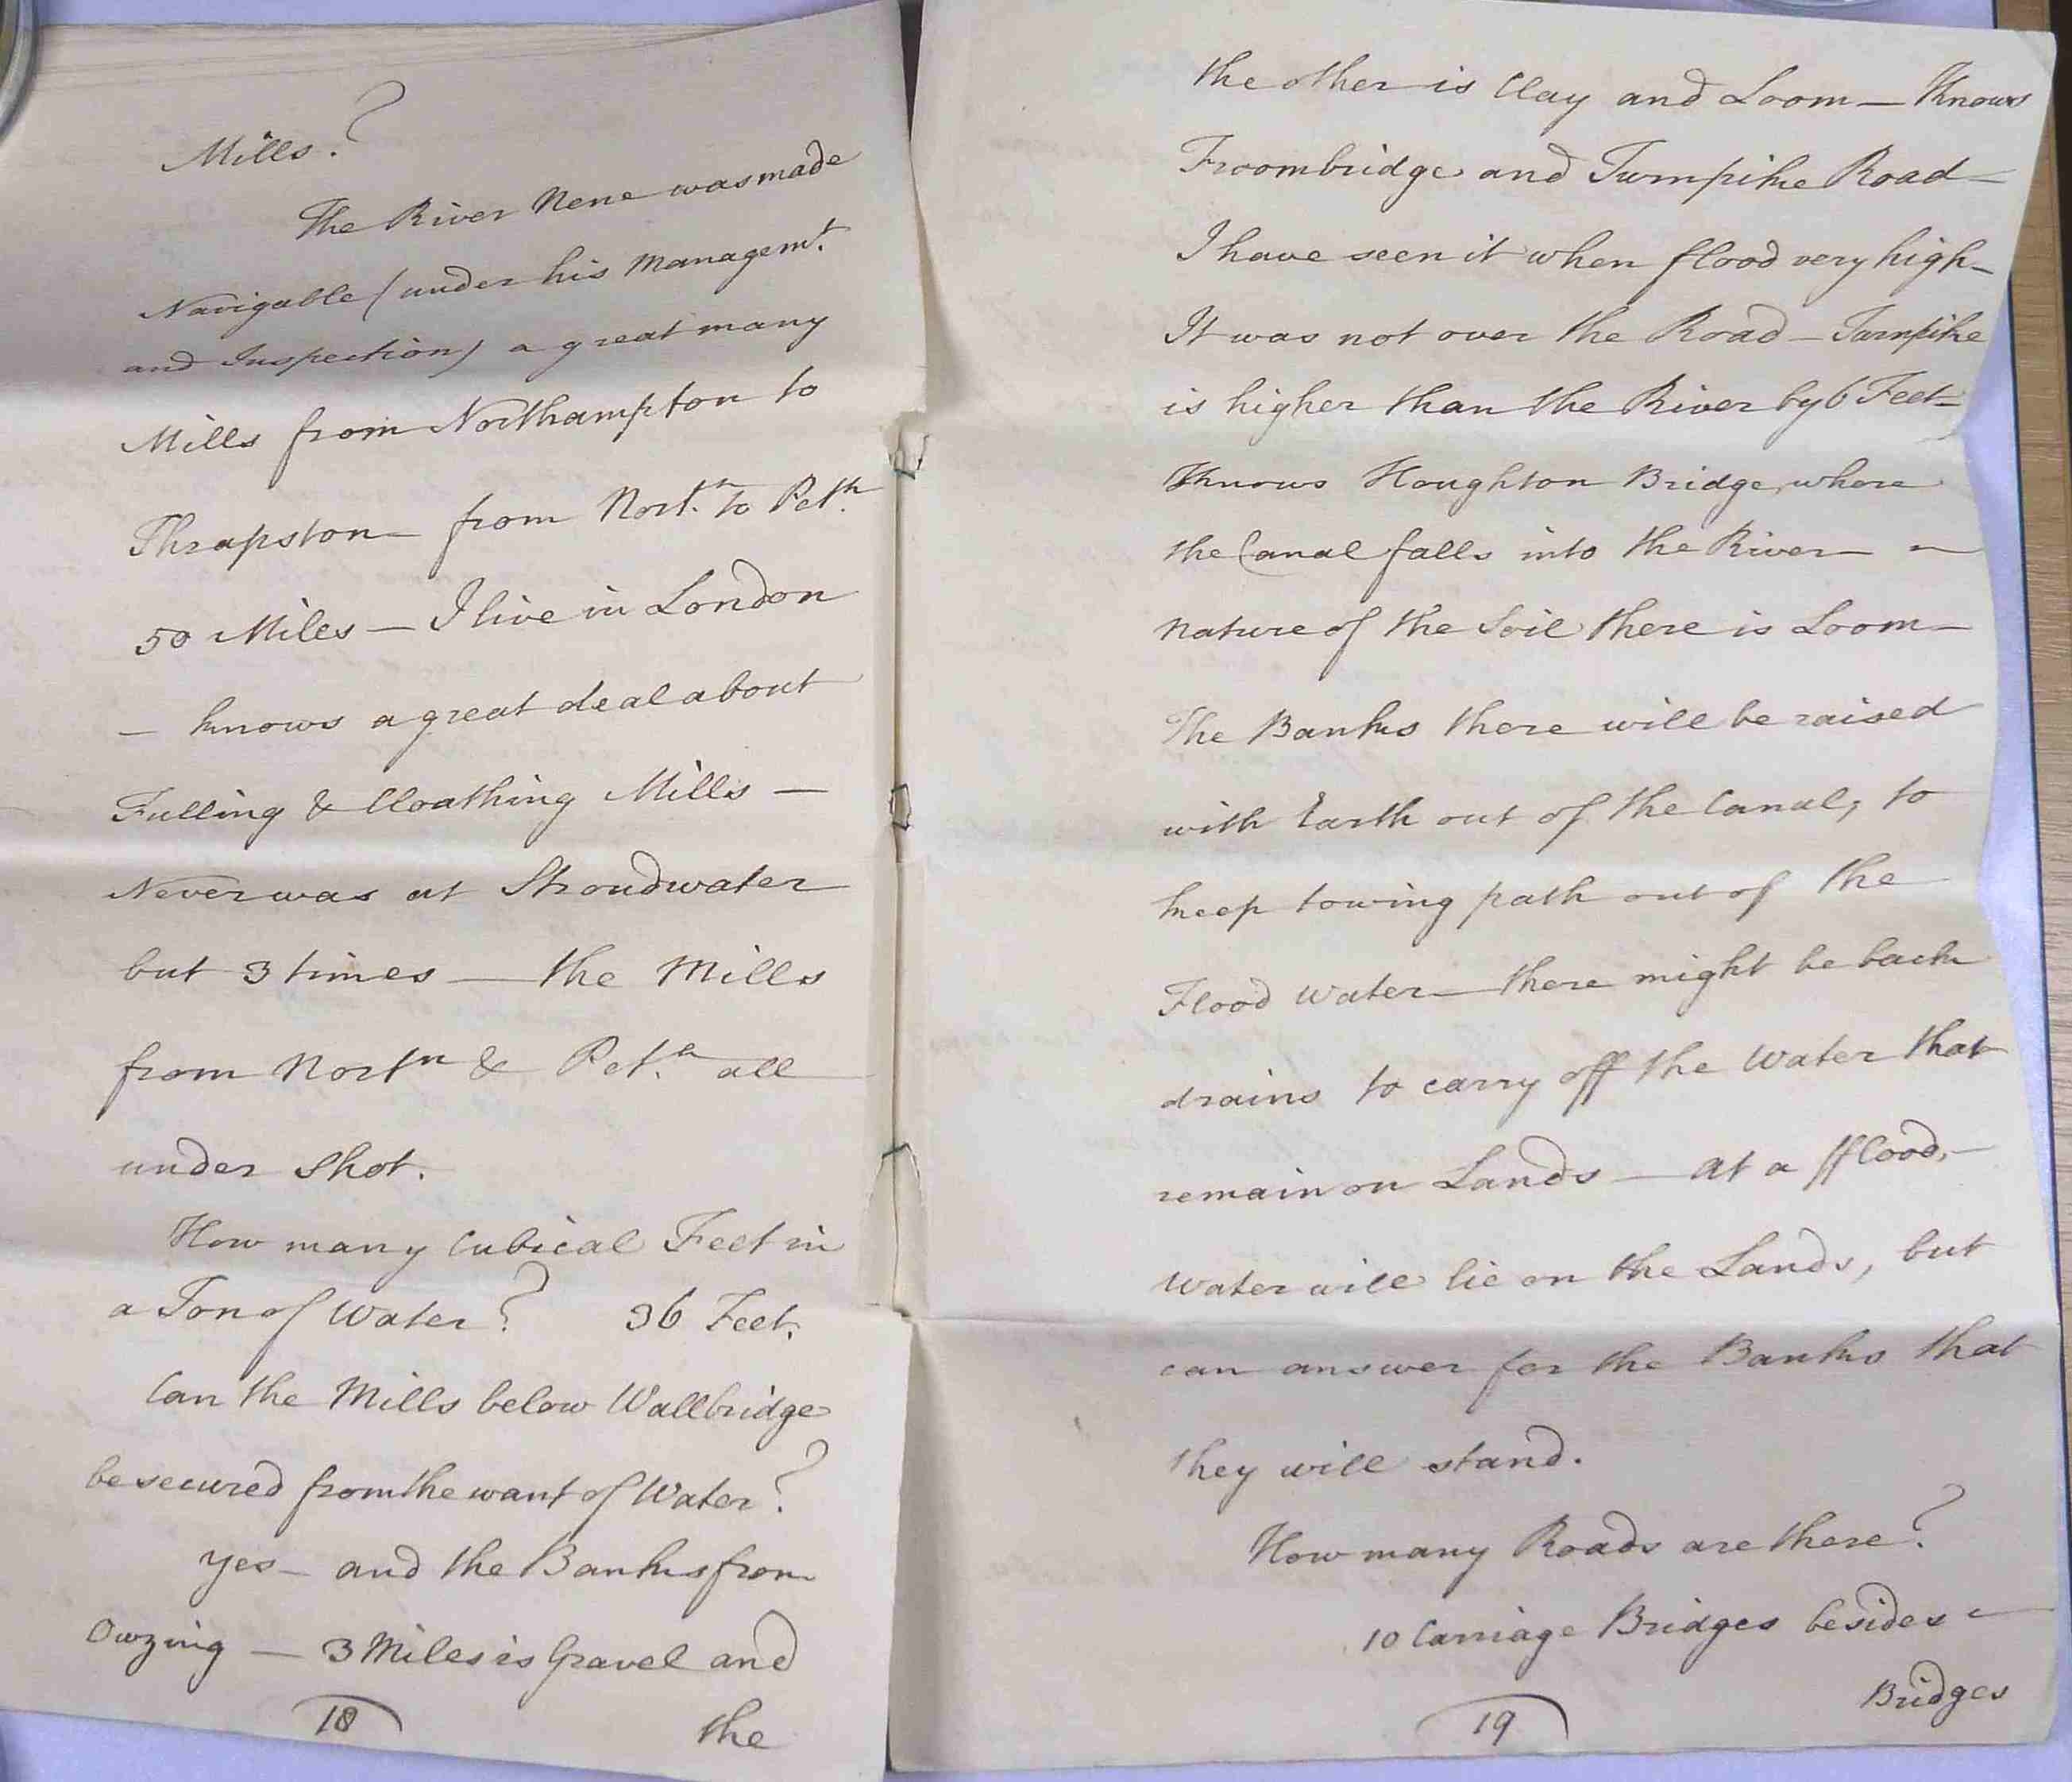 Mills?
The River Nene was made
Navigable (under his Managemt.
and Inspection) a great many
Mills from Northampton to
Thrapston — from Nort.n to Pet.h
50 Miles — I live in London
— knows a great deal about
Fulling & Cloathing Mills —
Never was at Stroudwater
but 3 times — the Mills
from Nortn & Pet.h all
under shot.
How many Cubical Feet in
a Ton of Water? 36 Feet.
Can the Mills below Wallbridge
be secured from the want of Water?
yes — and the Banks from
Owzing — 3 Miles is Gravel and
18
the
the other is Clay and Loom — Knows
Froombridge and Turnpike Road —
I have seen it when flood very high —
It was not over the Road — Turnpike
is higher than the River by 6 Feet —
Knows Houghton Bridge, where
the Canal falls into the River —
nature of the Soil there is Loom —
The Banks there will be raised
with Earth out of the Canal, to
keep towing path out of the
Flood Water — there might be back
drains to carry off the Water that
remain on Lands — at a fflood, —
Water will lie on the Lands, but
can answer for the Banks that
they will stand.
How many Roads are there?
10 Carriage Bridges besides —
19
Bridges